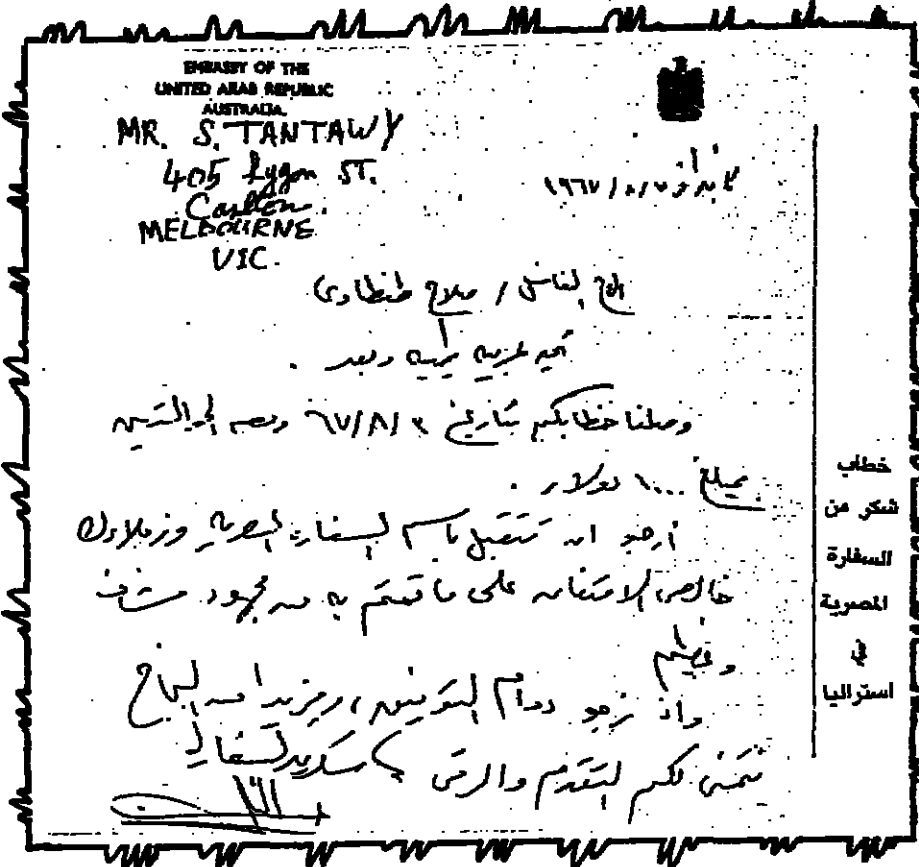 EMBASSY OF THE
UNITED ARAB REPUBLIC
AUSTRALIA.
MR. S. TANTAWY
405 Lygon ST.
Carlton.
MELBOURNE
VIC.
١٩٦٧/٨/٧
الاخ الفاضل / صلاح طنطاوى
تحيه عربيه طيبه وبعد .
وصلنا خطابكم بتاريخ ٣/٨/٦٧
بمبلغ ١٠٠٠ دولار .
أرجو ان تتقبل باسم السفارة المصرية وزملاءك
خالص الامتنان على ما قمتم به من مجهود مشرف
وعظيم
واذ نرجو دوام التوفيق ، ومزيدا من النجاح
نتمنى لكم التقدم والرقى
سكرتير السفارة
خطاب
شكر من
السفارة
المصرية
في
استراليا